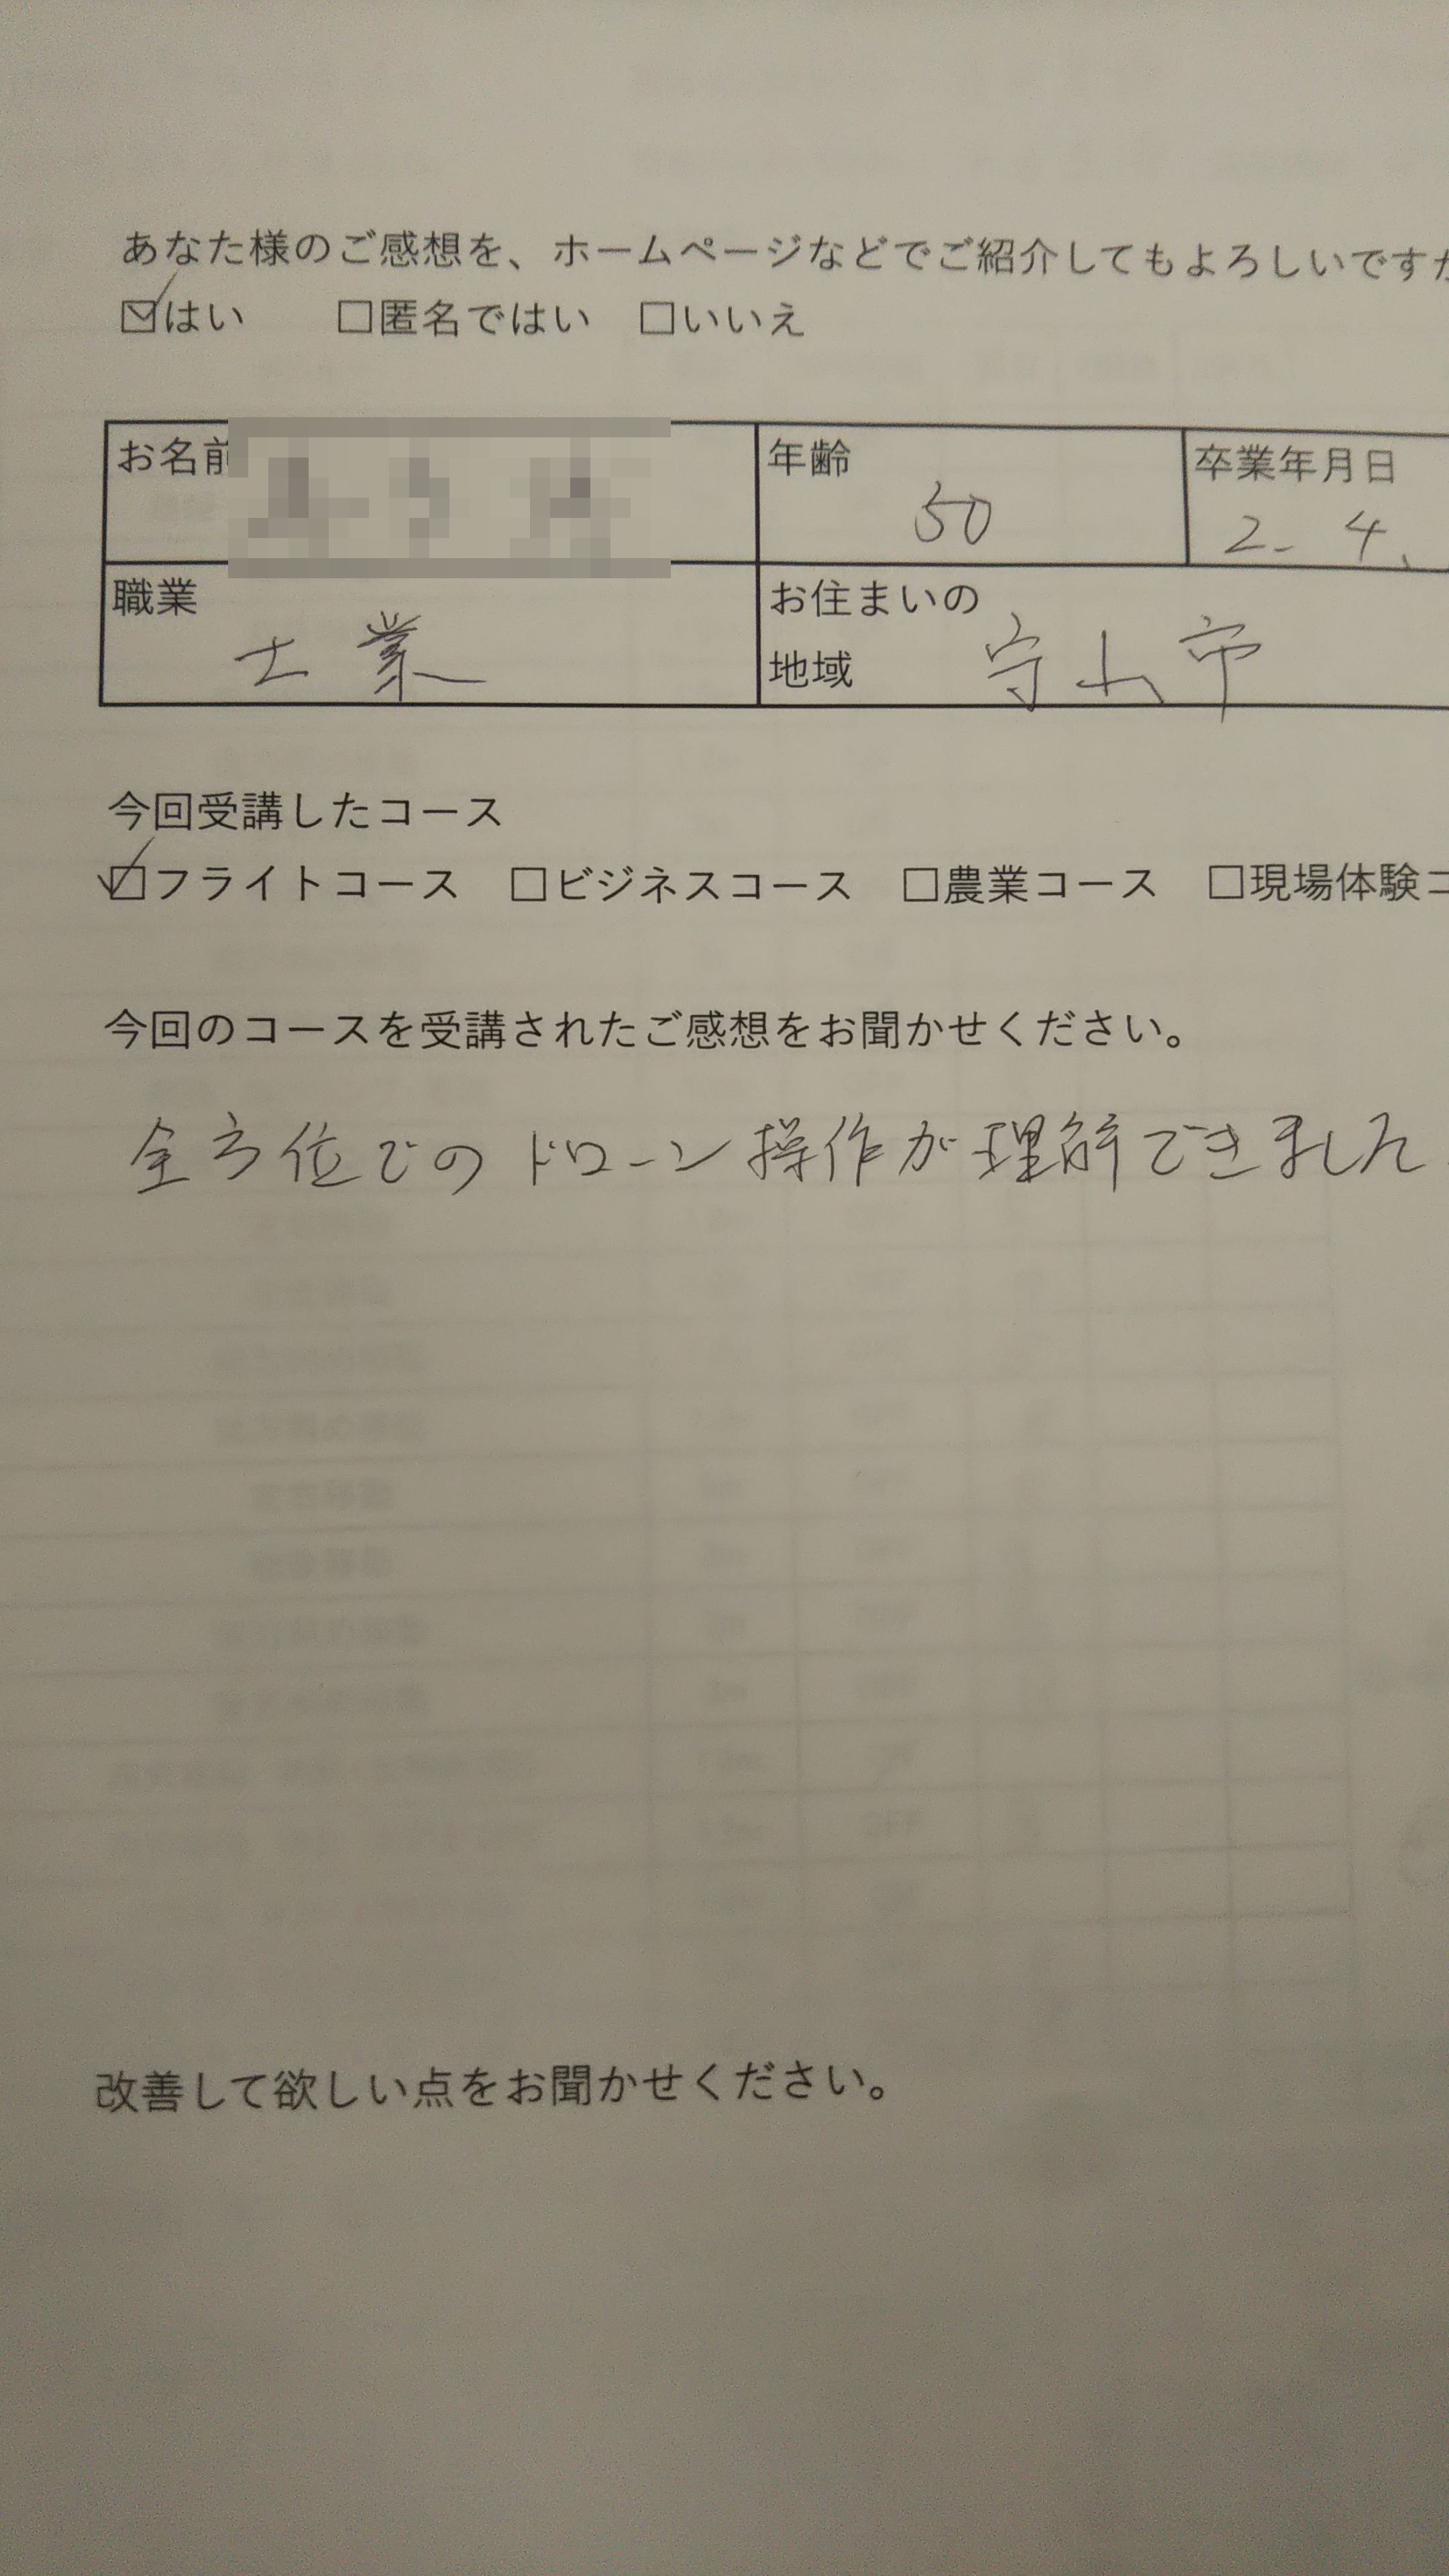 あなた様のご感想を、ホームページなどでご紹介してもよろしいですか
☑はい □匿名ではい □いいえ
お名前
年齢 50
卒業年月日 2. 4.
職業 士業
お住まいの
地域 守山市
今回受講したコース
☑フライトコース □ビジネスコース □農業コース □現場体験コ
今回のコースを受講されたご感想をお聞かせください。
全方位でのドローン操作が理解できました
改善して欲しい点をお聞かせください。